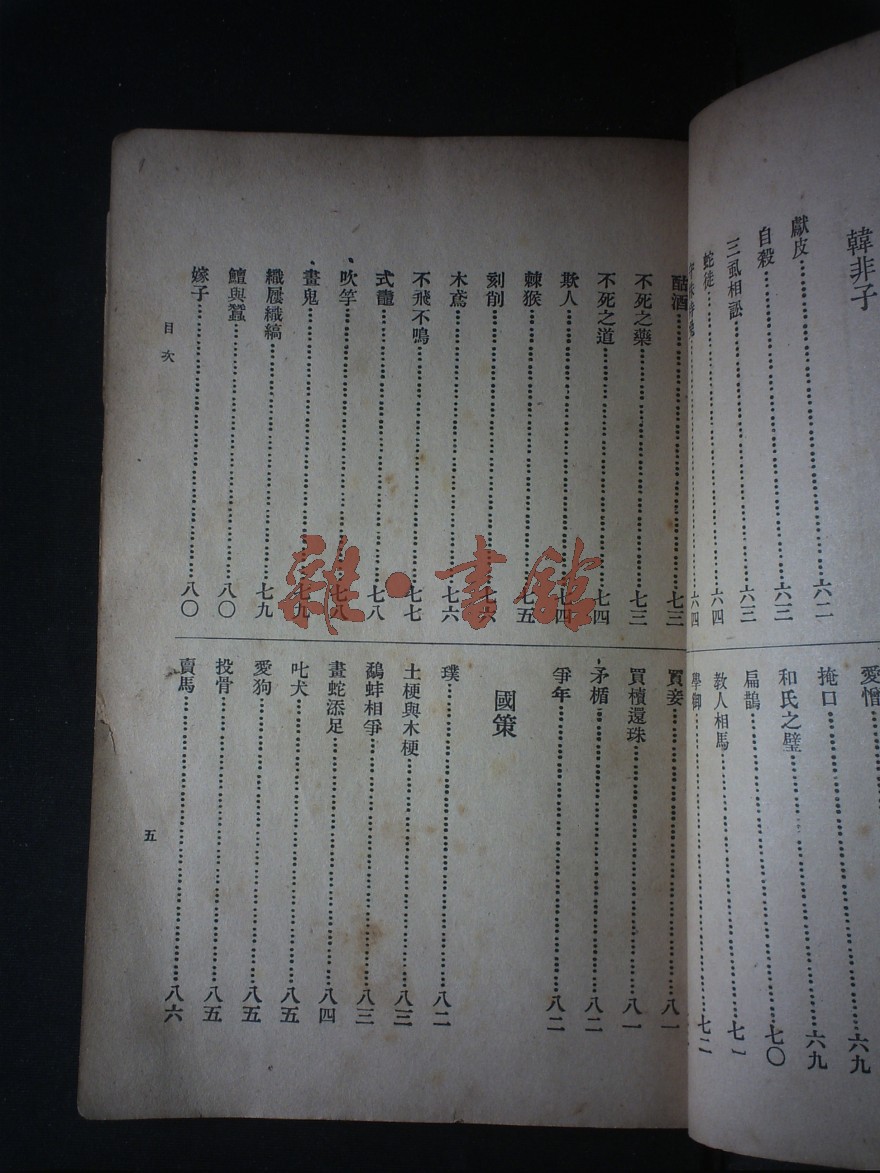 韓非子
獻皮……六二
自殺……六三
三虱相訟……六三
蛇徒……六四
六四
愛憎……六九
掩口……六九
和氏之璧……七〇
扁鵲……七一
教人相馬……七二
學御……
酤酒……七三
不死之藥……七三
不死之道……七四
欺人……七四
棘猴……七五
刻削……七六
木鳶……七六
不飛不鳴……七七
式鼃……七八
吹竽……七八
畫鬼……七九
織屨織縞……七九
鱣與蠶……八〇
嫁子……八〇
買妾……八一
買櫝還珠……八一
矛楯……八二
爭年……八二
國策
璞……八二
土梗與木梗……八三
鷸蚌相爭……八三
畫蛇添足……八四
叱犬……八五
愛狗……八五
投骨……八五
賣馬……八六
目次
五
雜·書館